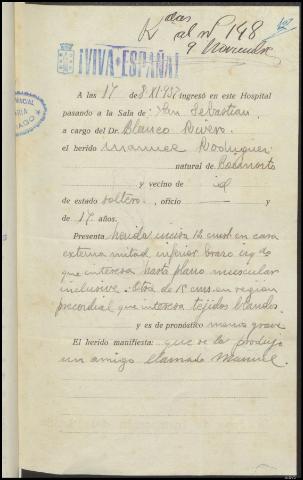 al nº 148
9 Noviembre
¡VIVA ESPAÑA!
A las 17 de 8 XI-937 ingresó en este Hospital
pasando a la Sala de: San Sebastian
a cargo del Dr. Blanco Rivero.
el herido Manuel Rodriguez
natural de
y vecino de id
de estado soltero, oficio —
y
de 17 años.
Presenta herida incisa 12 cmts en cara
externa mitad inferior brazo izqdo
que interesa hasta plano muscular
inclusive. Otra de 15 cms en region
precordial que interesa tejidos blandos.
y es de pronóstico menos grave
El herido manifiesta: que se la produjo
un amigo llamado Manuel.